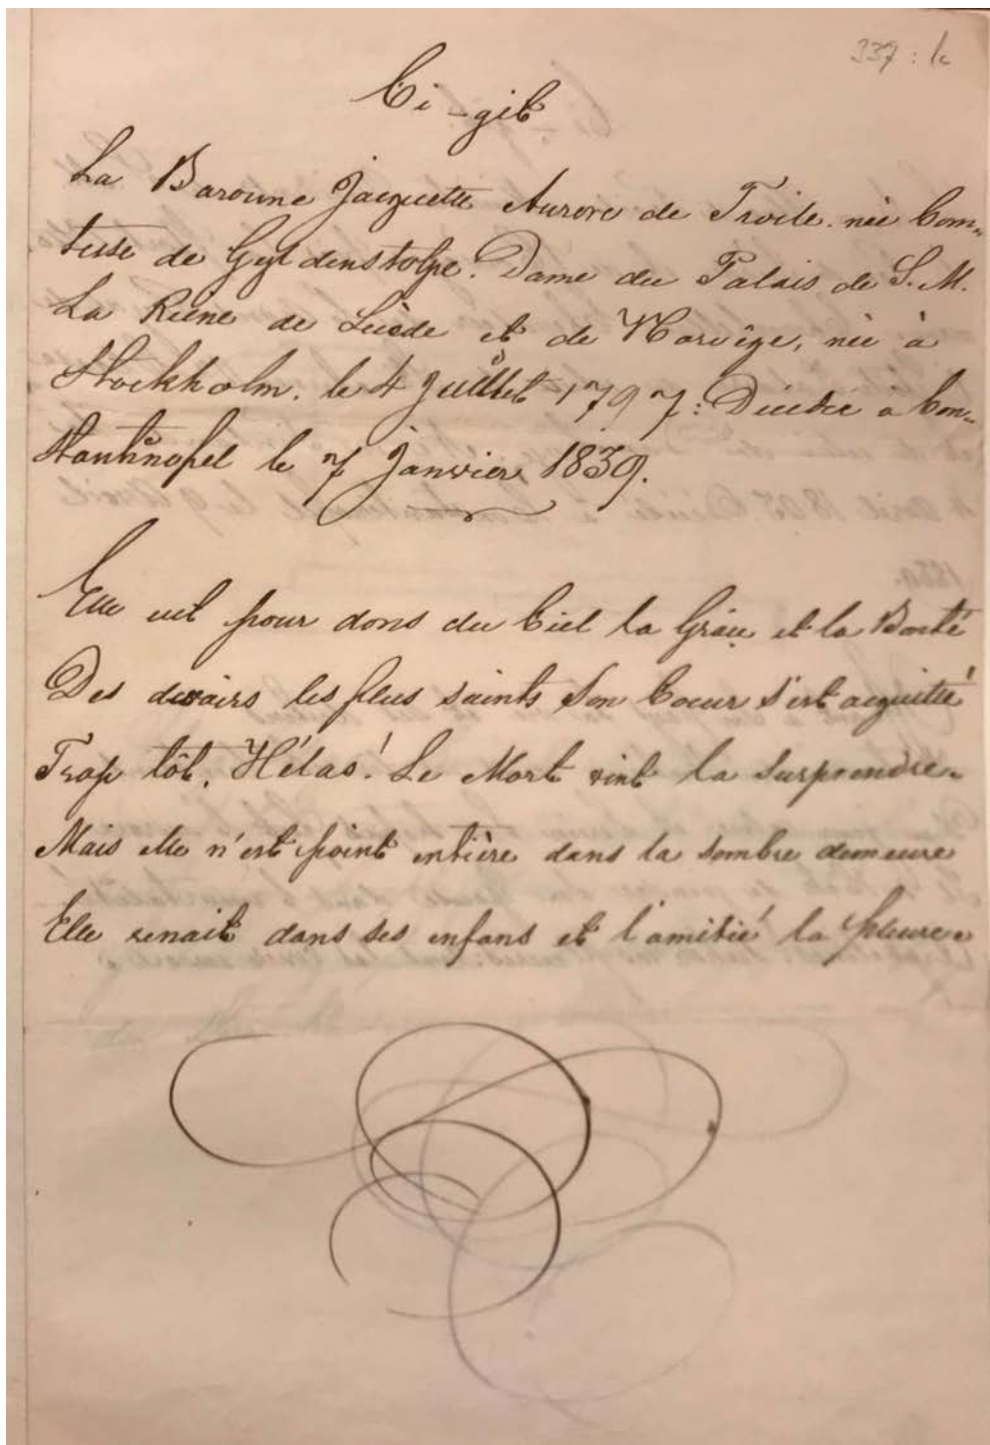 337 : k
Ci-gît
La Baronne Jacquette Aurore de Troile. née Com-
tesse de Gyldenstolpe. Dame du Palais de S. M.
La Reine de Suède et de Norvège, née à
Stockholm. le 4 Juillet 1797: Décédée à Con-
stantinopel le 7 Janvier 1839.
Elle eut pour dons du Ciel la Grâce et la Bonté
Des devoirs les plus saints Son Coeur s'est acquitté
Trop tôt, Hélas! Le Mort vint la surprendre.
Mais elle n'est point entière dans la sombre demeure
Elle renait dans ses enfans et l'amitié la pleure.